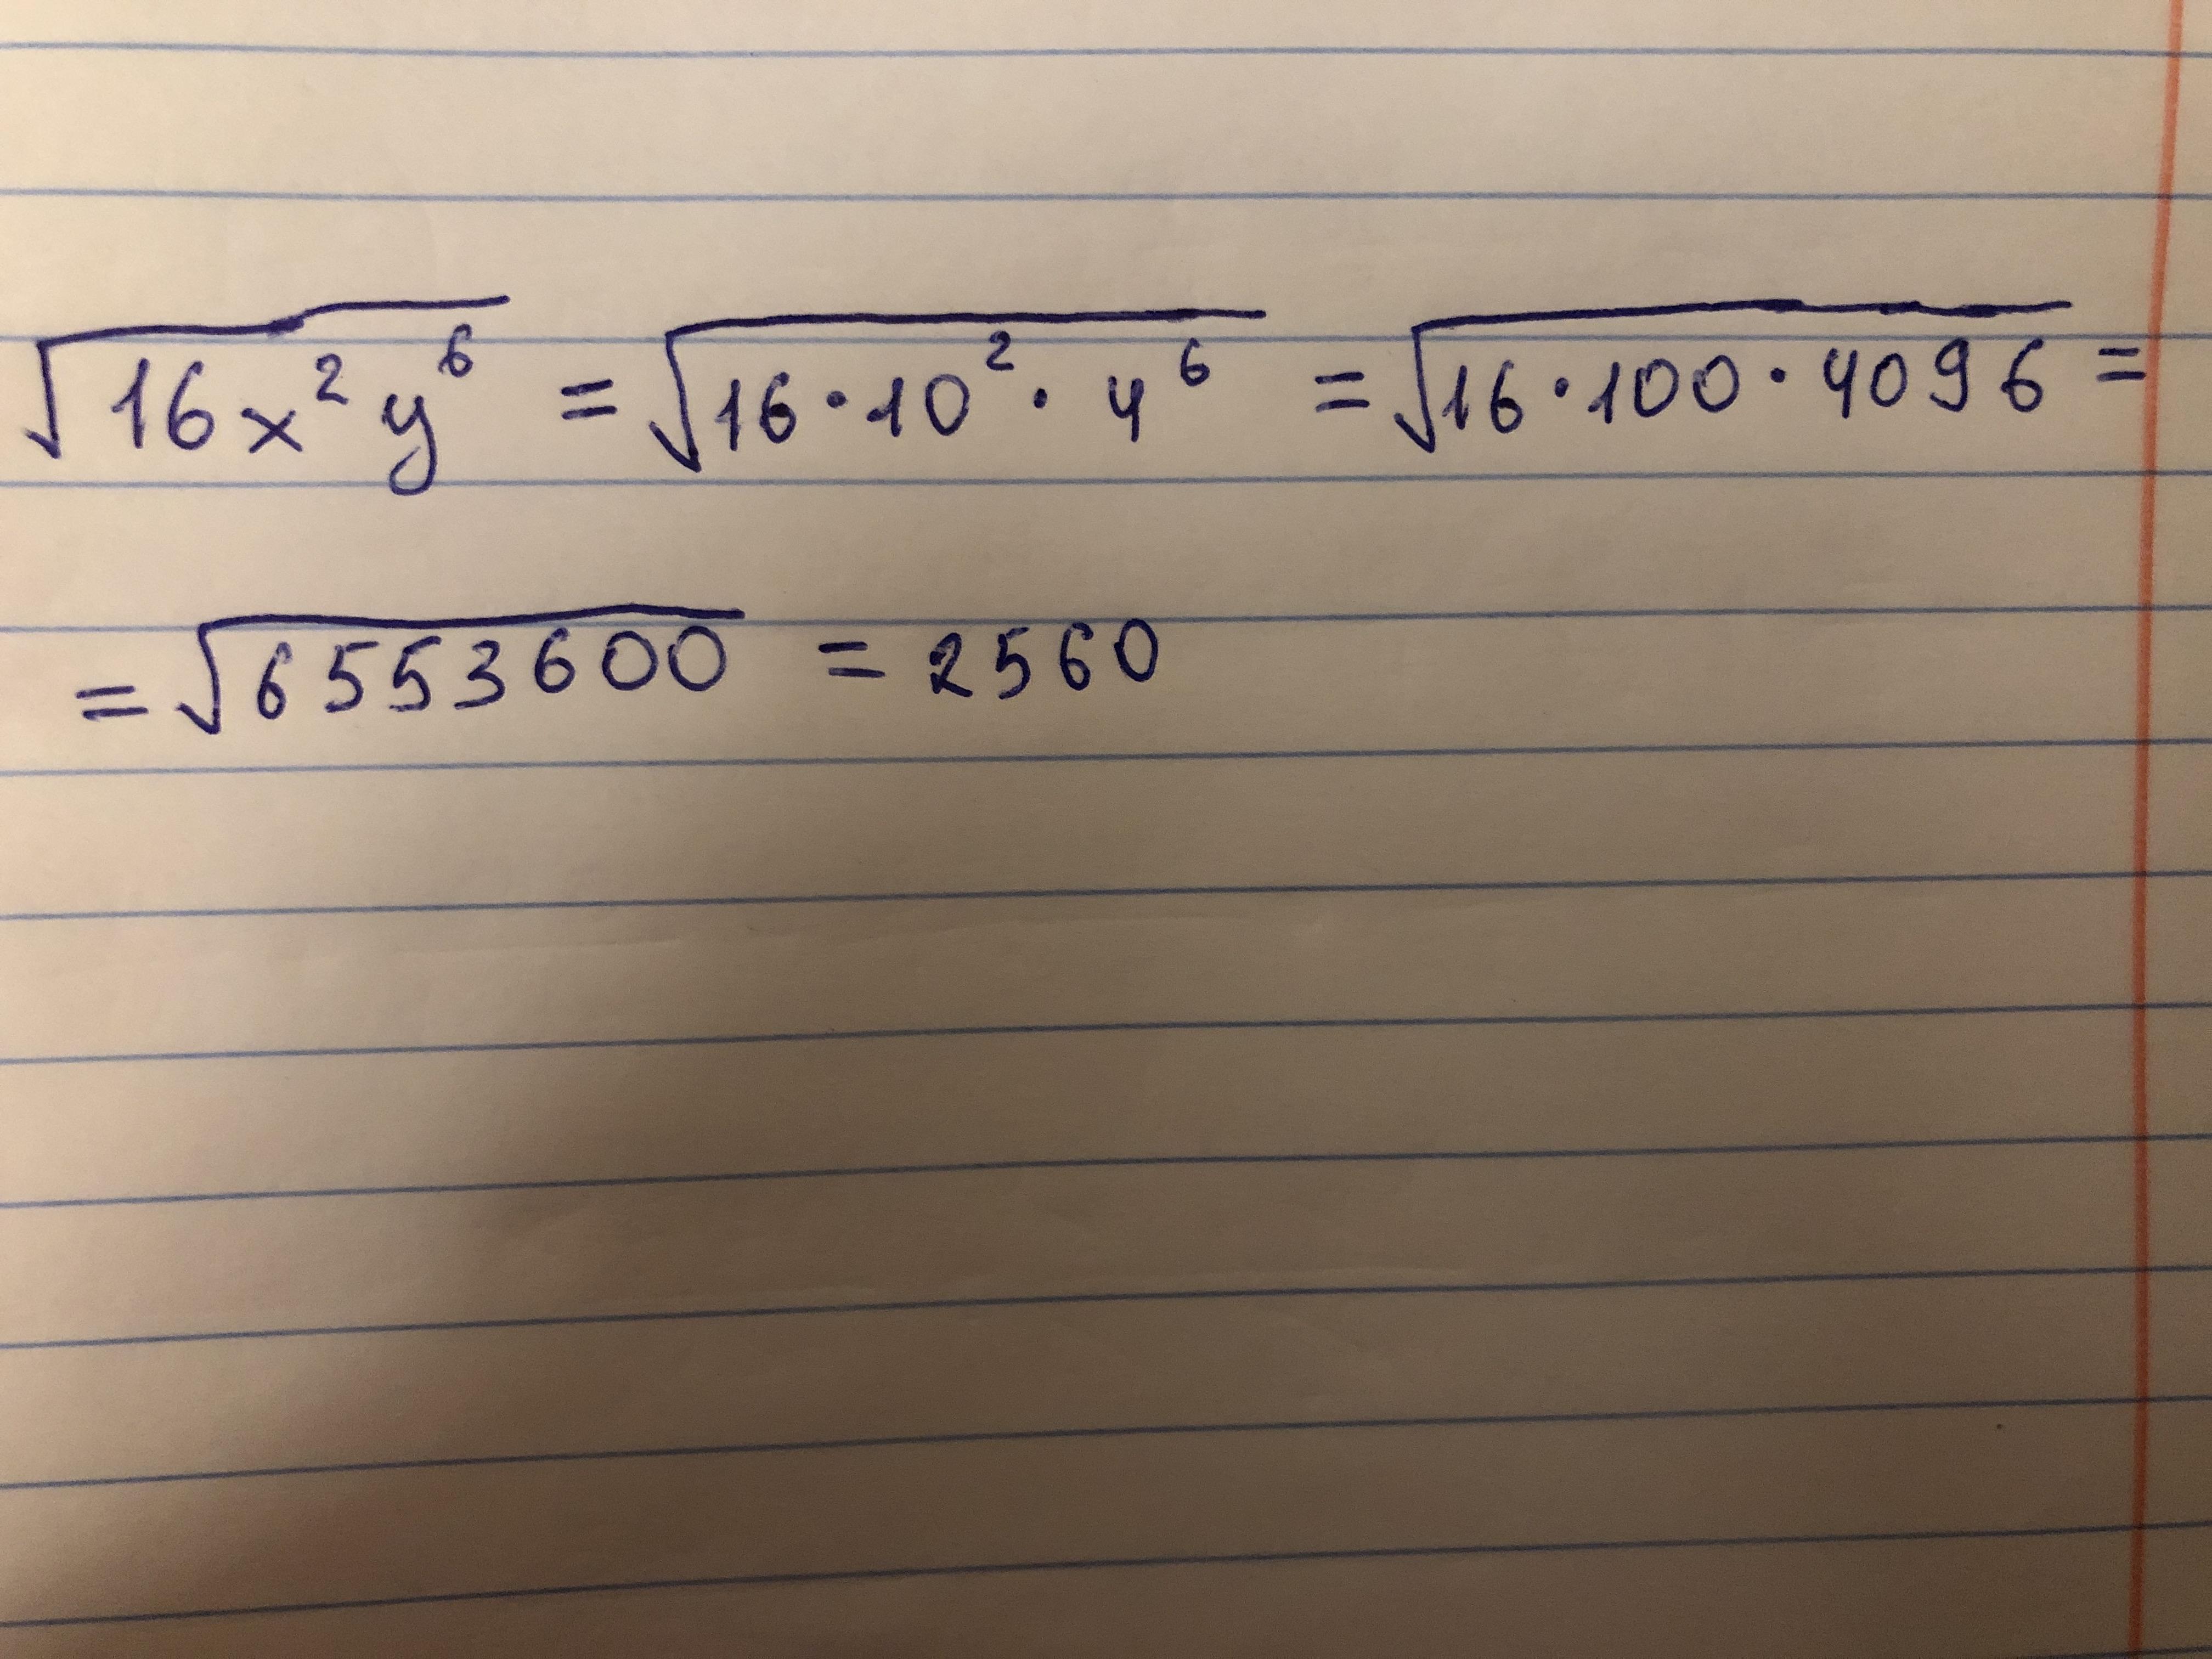 √16x²y⁶ = √16·10²·4⁶ = √16·100·4096 =
= √6553600 = 2560